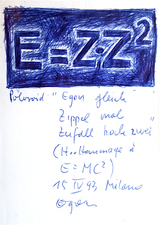 E=Z·Z²
Polaroid "Egon gleich
Zippel mal
Zufall hoch zwei"
(H..Hommage à
E=MC²)
15 IV 93 Milano
Egon